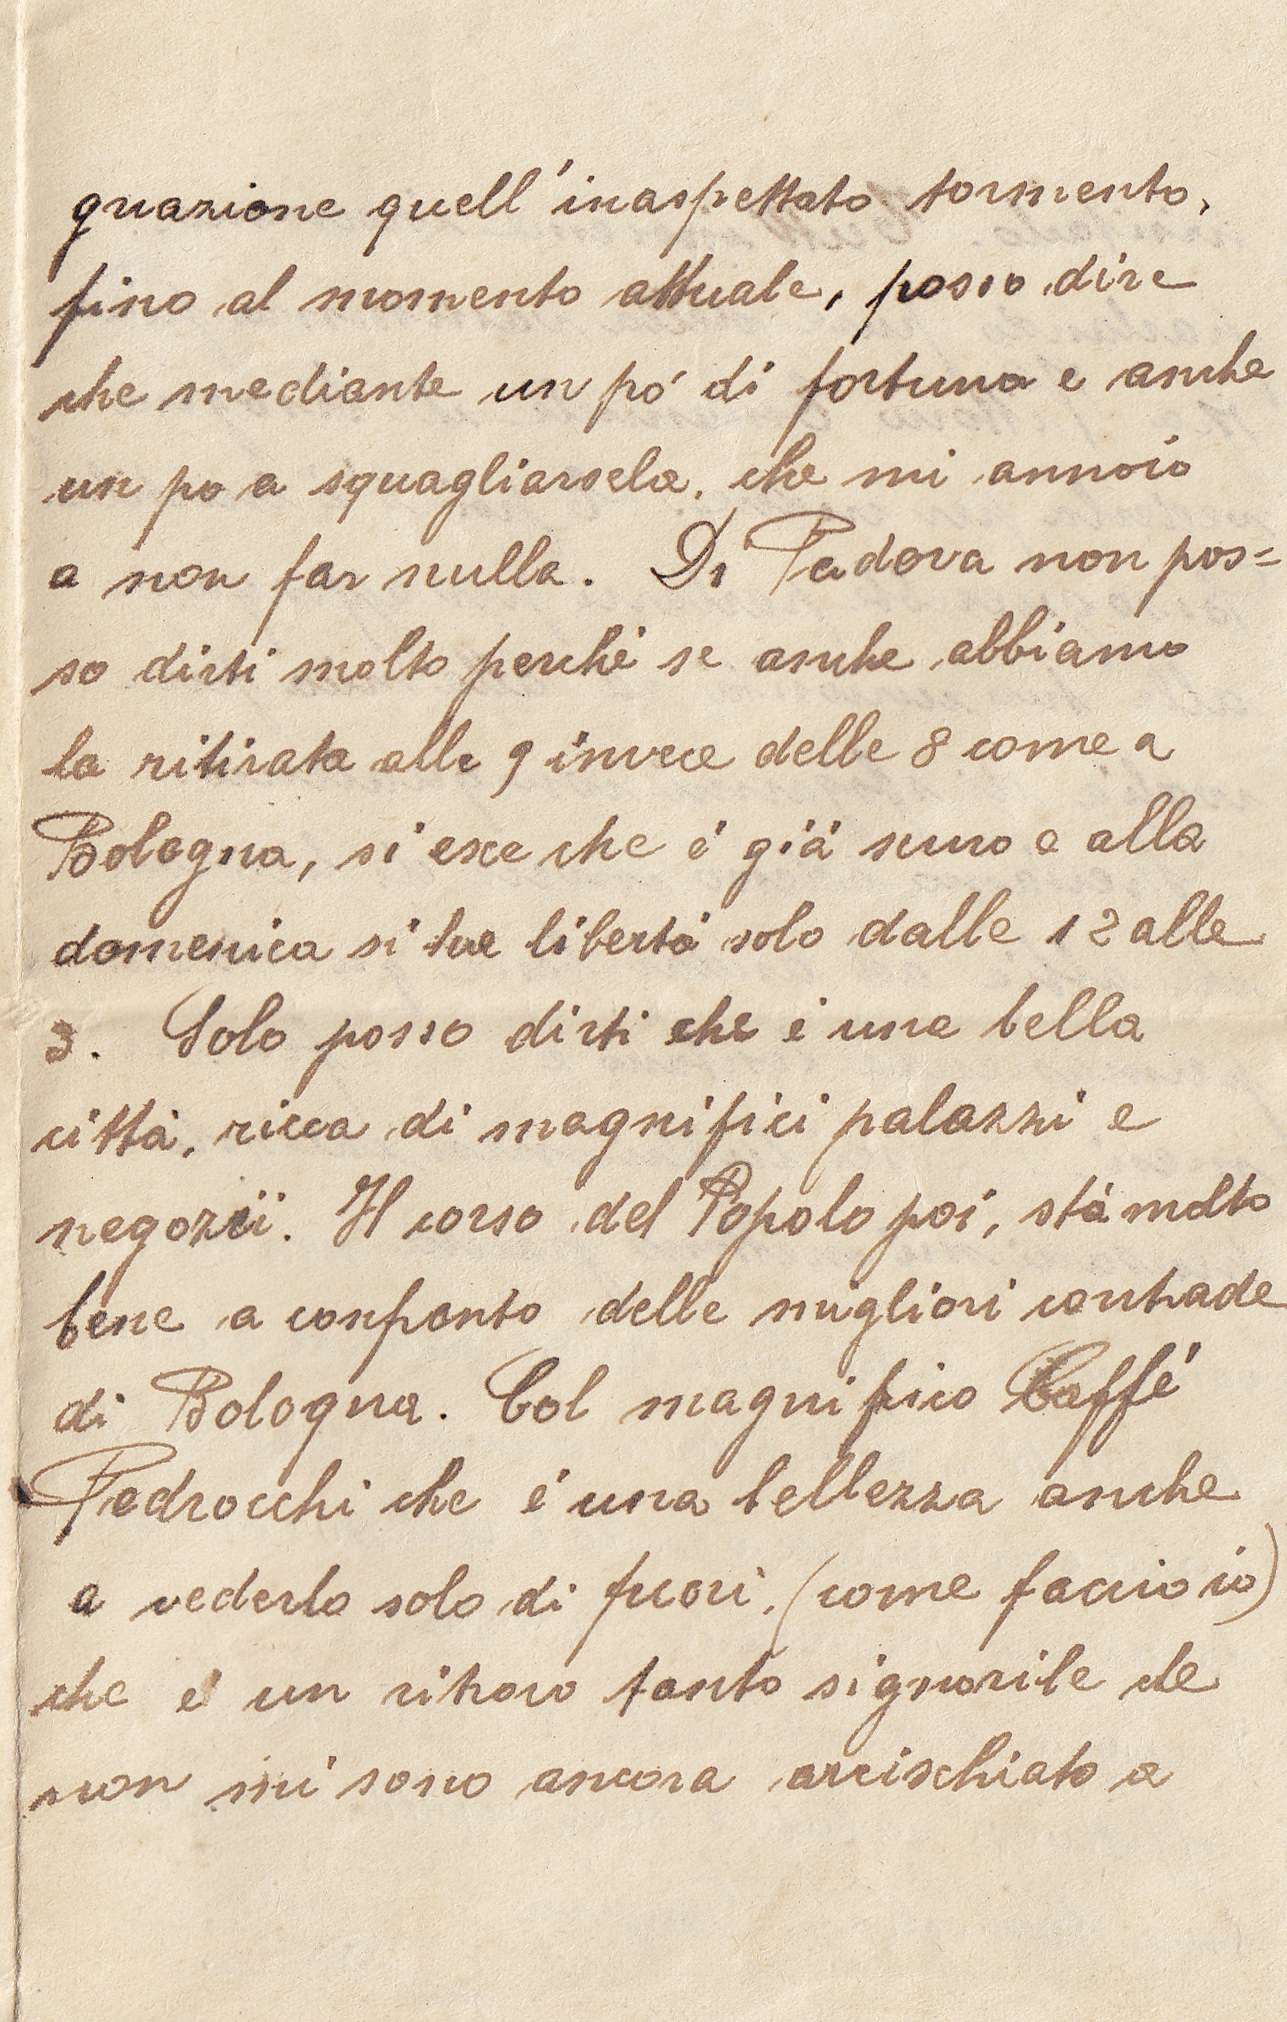 gnazione quell'inaspettato tormento,
fino al momento attuale, posso dire
che mediante un pó di fortuna e anche
un po a squagliarsela, che mi annoio
a non far nulla. Di Padova non pos=
so dirti molto perché se anche abbiamo
la ritirata alle 9 invece delle 8 come a
Bologna, si esce che é giá scuro e alla
domenica si ha libertá solo dalle 12 alle
3. Solo posso dirti che é una bella
cittá, ricca di magnifici palazzi e
negozii. Il corso del Popolo poi, stá molto
bene a confronto delle migliori contrade
di Bologna. Col magnifico Caffé
Pedrocchi che é una bellezza anche
a vederlo solo di fuori, (come faccio io)
che é un ritrovo tanto signorile che
non mi sono ancora arrischiato a